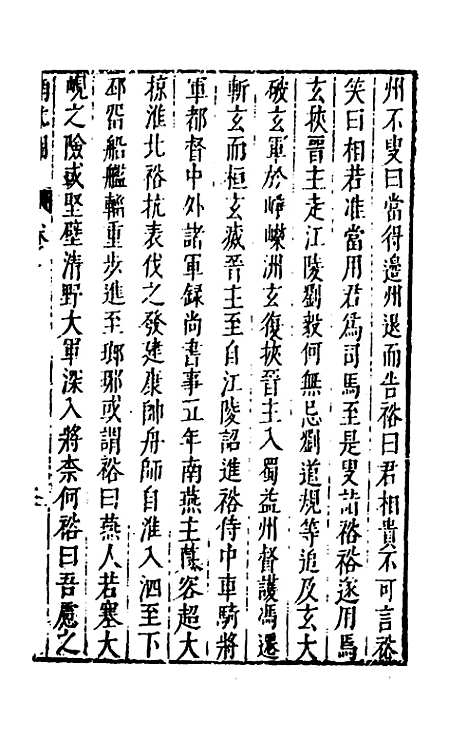 州不叟曰當得邊州退而告裕曰君相貴不可言裕
笑曰相若准當用君爲司馬至是叟詣裕裕遂用焉
玄挾晉主走江陵劉毅何無忌劉道規等追及玄大
破玄軍於崢嶸洲玄復挾晉主入蜀益州督護馮遷
斬玄而桓玄滅晉主至自江陵詔進裕侍中車騎將
軍都督中外諸軍録尚書事五年南燕主慕容超大
掠淮北裕抗表伐之發建康帥舟師自淮入泗至下
邳畱船艦輜重步進至瑯琊或謂裕曰燕人若塞大
峴之險或堅壁清野大軍深入將柰何裕曰吾慮之